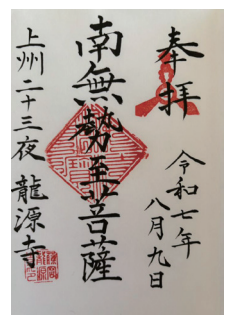 奉拝
令和七年
八月九日
南無勢至菩薩
上州二十三夜
龍源寺